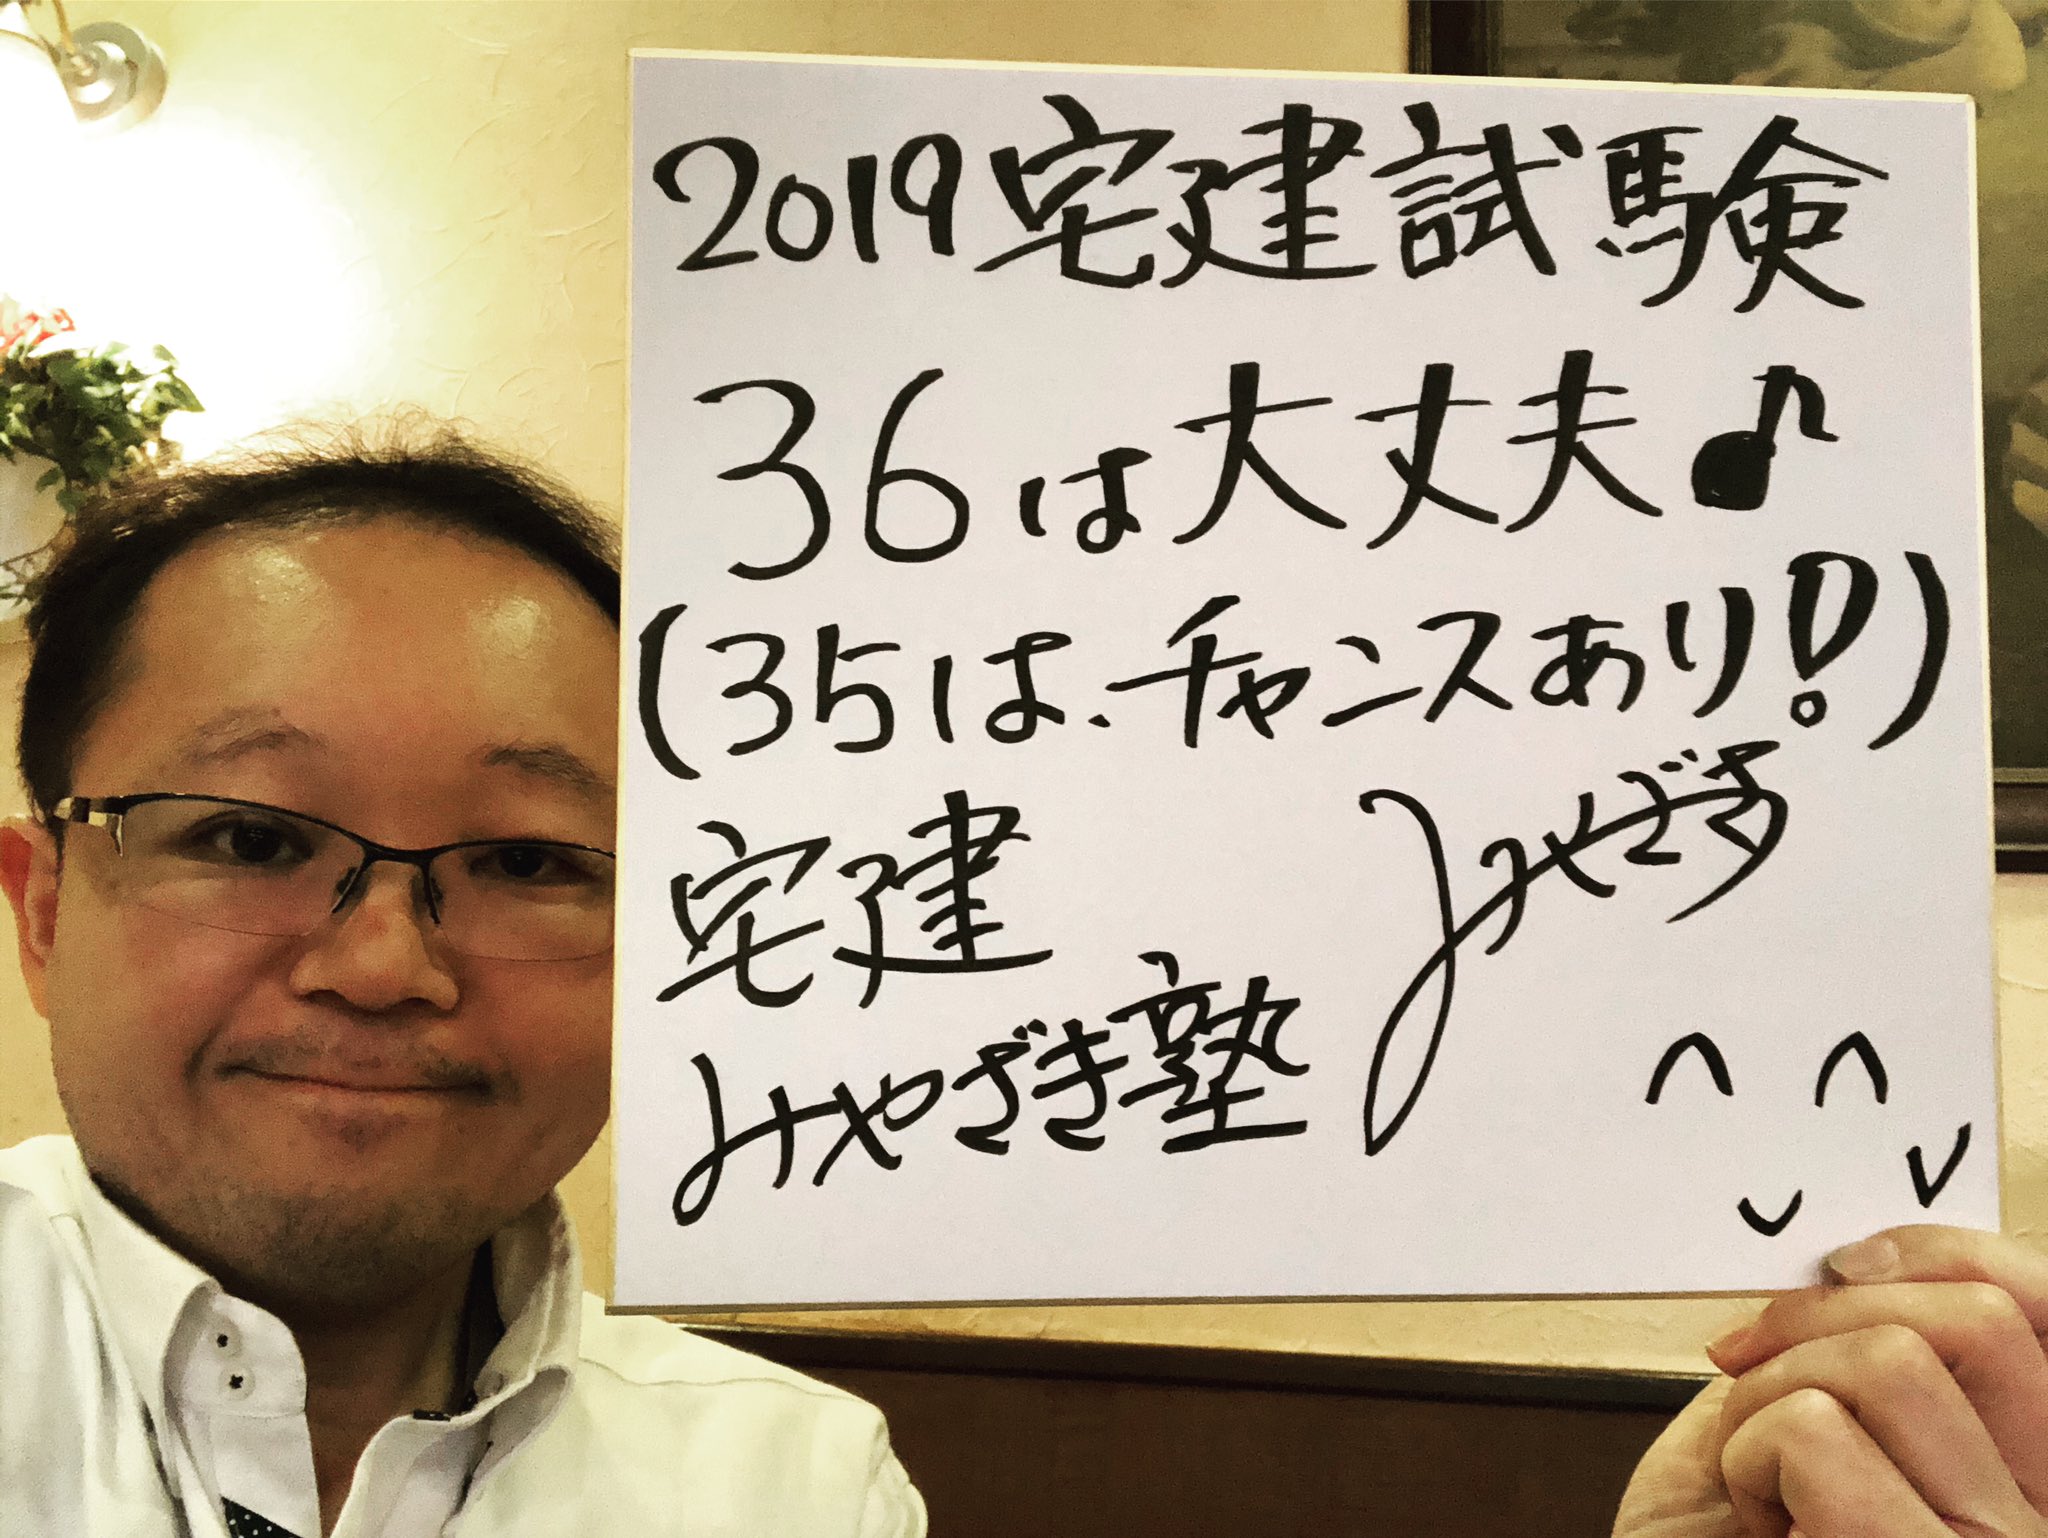 2019宅建試験
36は大丈夫♪
(35は、チャンスあり!)
宅建
みやざき塾
みやざき